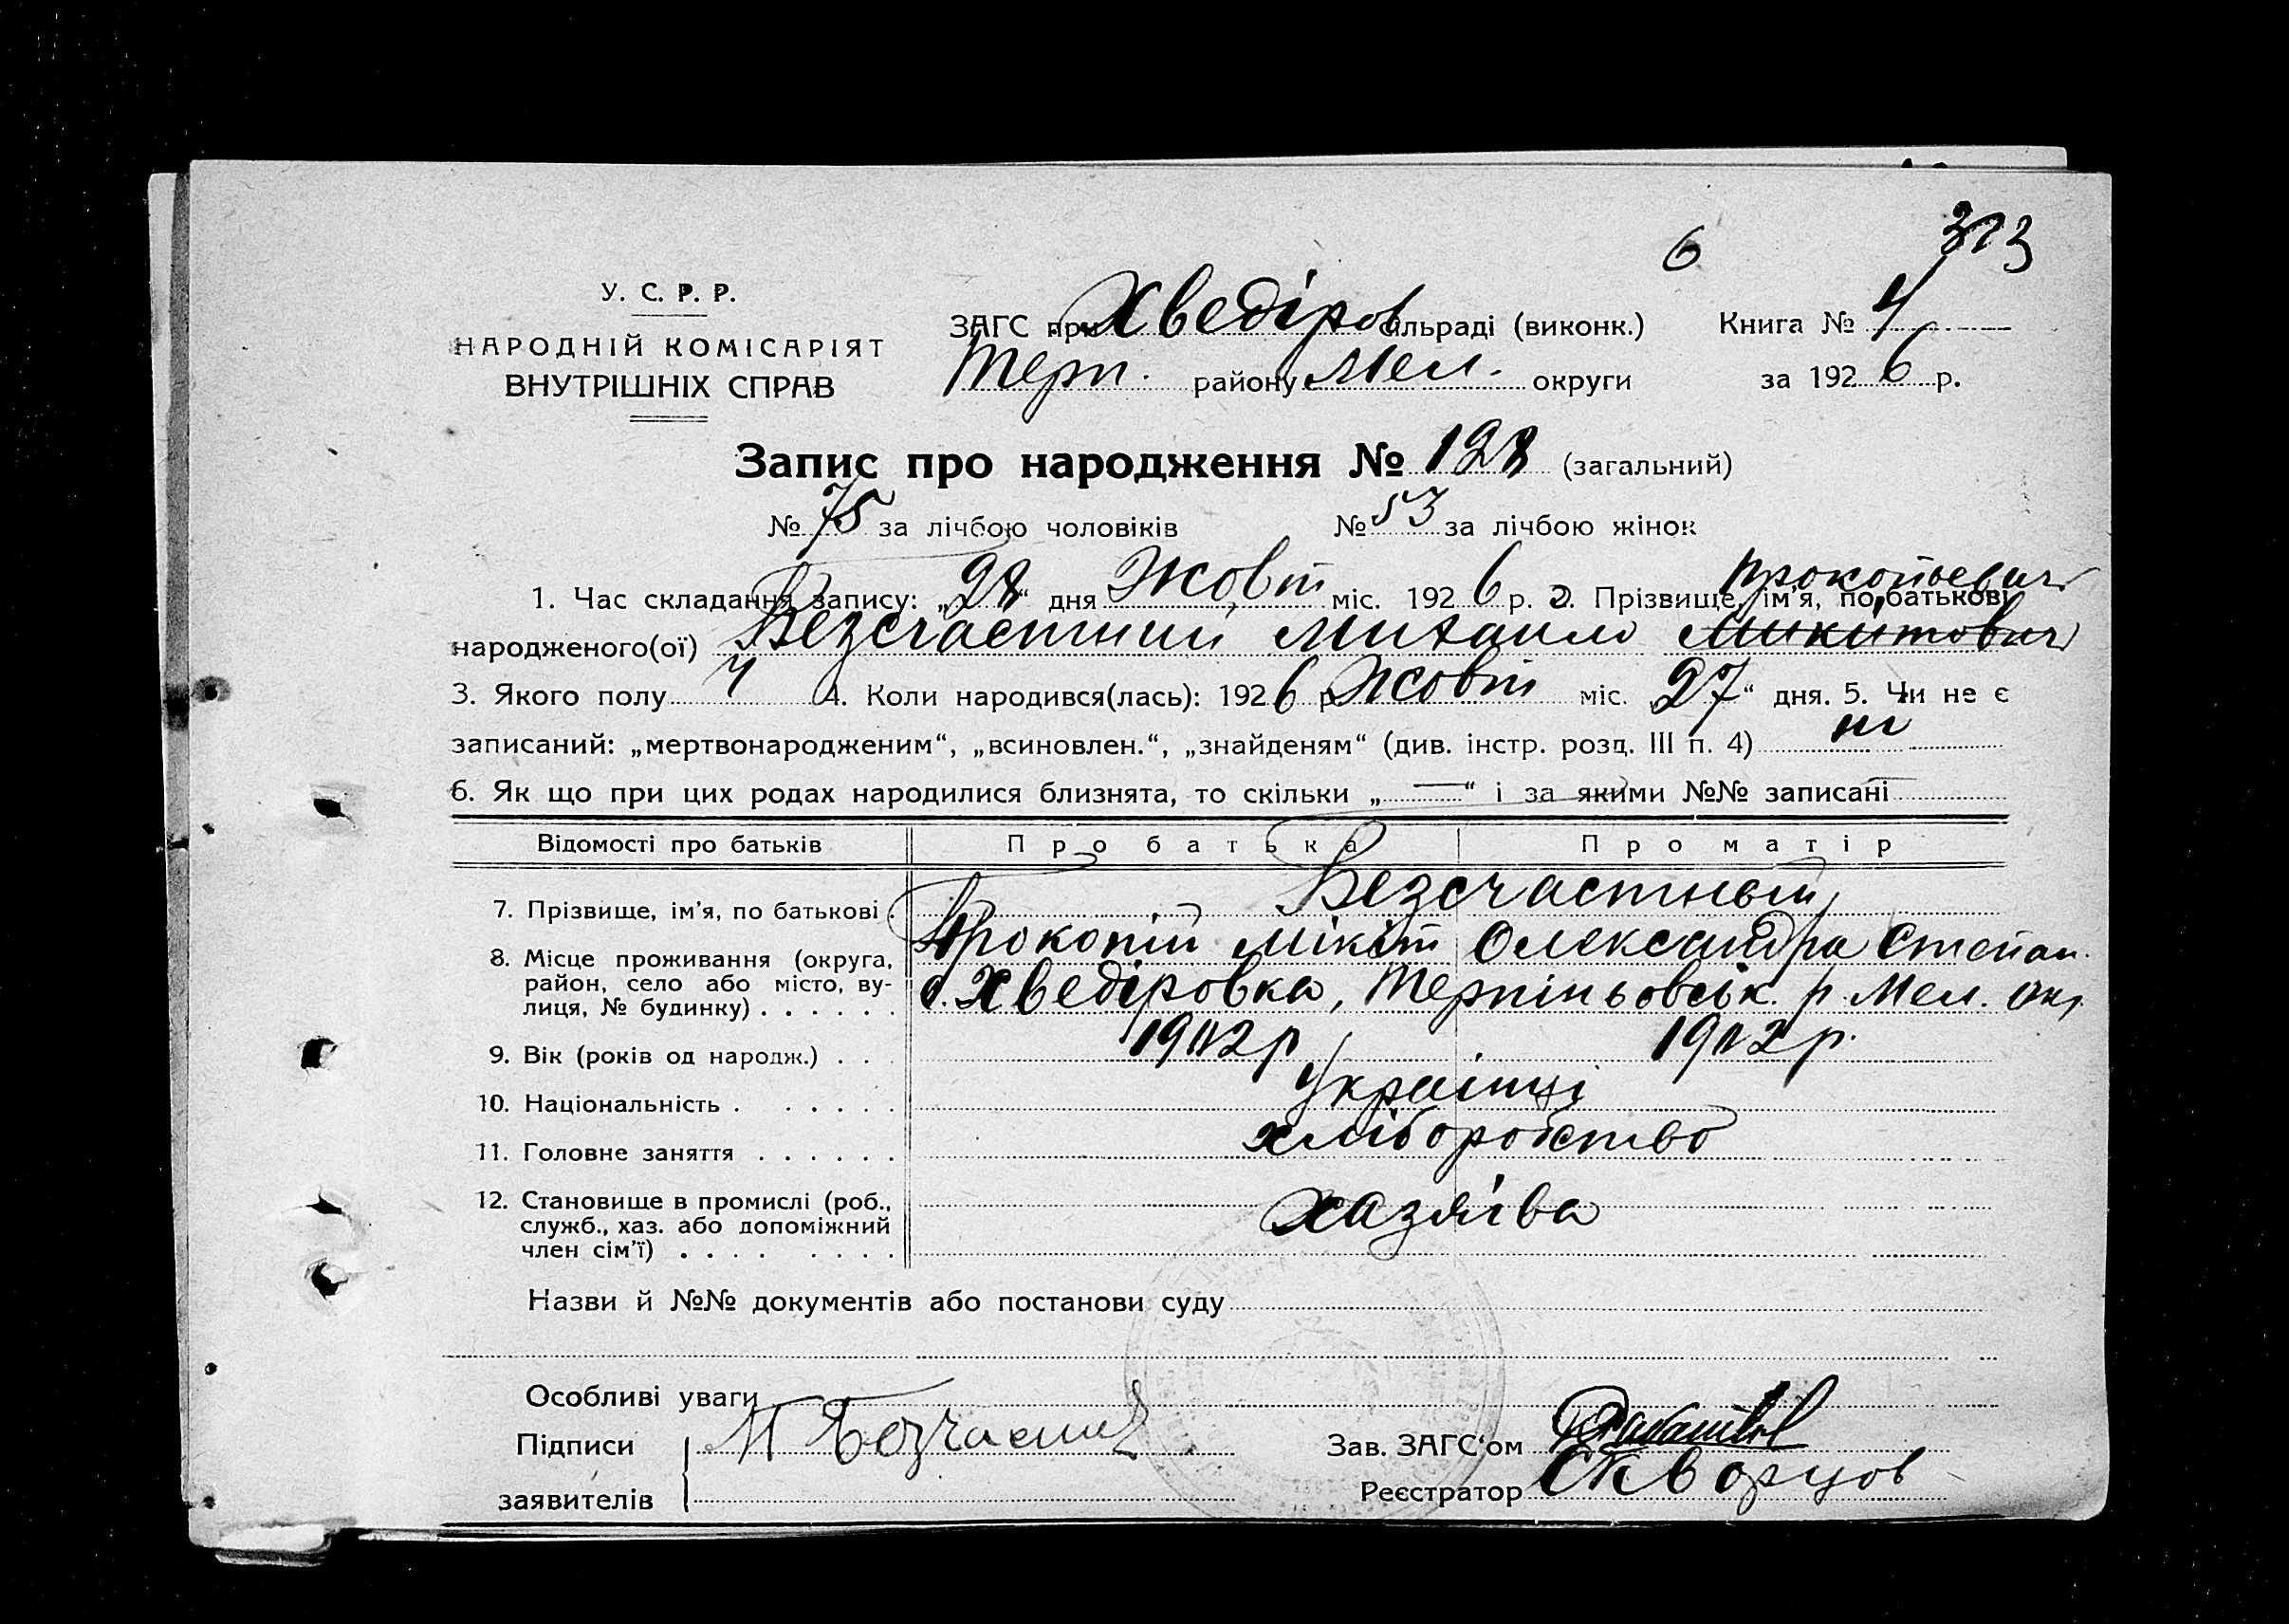 6
У. С. Р. Р.
ЗАГС при Хведіров сільраді (виконк.) Книга № 4
НАРОДНІЙ КОМІСАРІЯТ
ВНУТРІШНІХ СПРАВ
Терп. району Мел. округи за 1926 р.
Запис про народження № 128 (загальний)
№ 75 за лічбою чоловіків № 53 за лічбою жінок
Прокопьевич
1. Час складання запису: „28“ дня Жовт міс. 1926 р. 2. Прізвище, ім’я, по батькові
народженого(ої) Безсчастний Михаило Микитович
3. Якого полу ч 4. Коли народився(лась): 1926 р. Жовт міс. „27“ дня. 5. Чи не є
записаний: „мертвонародженим“, „всиновлен.“, „знайденям“ (див. інстр. розд. III п. 4) ні
6. Як що при цих родах народилися близнята, то скільки „—“ і за якими №№ записані
Відомості про батьків Про батька Про матір
7. Прізвище, ім’я, по батькові . Безсчастный
Прокопій Мікіт Олександра Степан.
8. Місце проживання (округа,
район, село або місто, ву-
лиця, № будинку) . . . . . . с. Хведіровка, Терпіньовськ. р. Мел. окр.
9. Вік (років од народж.) . . . 1902р 1902р.
10. Національність . . . . . . Українці
11. Головне заняття . . . . . . хліборобство
12. Становище в промислі (роб.,
служб., хаз. або допоміжний
член сім’ї) . . . . . . . . хазяїва
Назви й №№ документів або постанови суду
Особливі уваги
Підписи
заявителів
Зав. ЗАГС‘ом
Реєстратор Скворцов